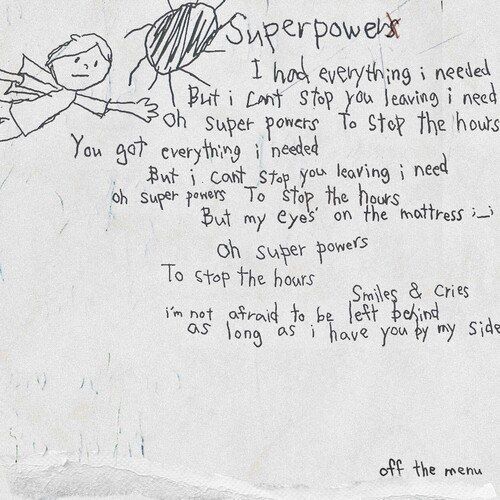 Superpowers
I had everything i needed
But i cant stop you leaving i need
Oh super powers To stop the hours
You got everything i needed
But i cant stop you leaving i need
oh super powers To stop the hours
But my eyes' on the mattress ;_;
Oh super powers
To stop the hours
Smiles & Cries
i'm not afraid to be left behind
as long as i have you by my side
off the menu